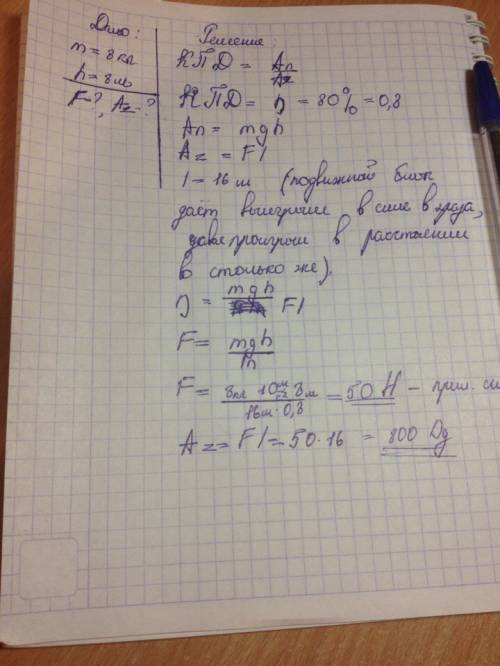 Дано:
m = 8 кг
h = 8 м
F-?, Az-?
Решение:
КПД = Aп/Az
КПД = η = 80% = 0,8
Aп = mgh
Az = Fl
l = 16 м (подвижной блок
даёт выигрыш в силе в 2 раза,
давая проигрыш в расстоянии
во столько же).
η = mgh/Fl
F = mgh/lη
F = 8кг · 10 м/с² 8м / 16м · 0,8 = 50 Н – прил. си
Az = Fl = 50 · 16 = 800 Дж